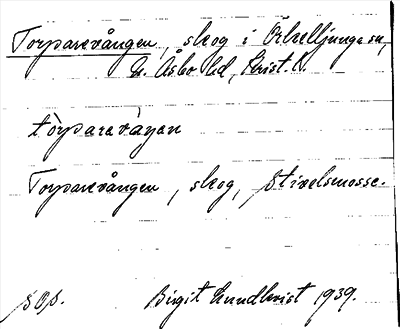 Torparevången, skog i Örkelljunga sn,
N. Åsbo hd, Krist. l.
tòrparevàŋen
Torparevången, skog, Stixelsmosse.
SOS. Birgit Lundkvist 1939.